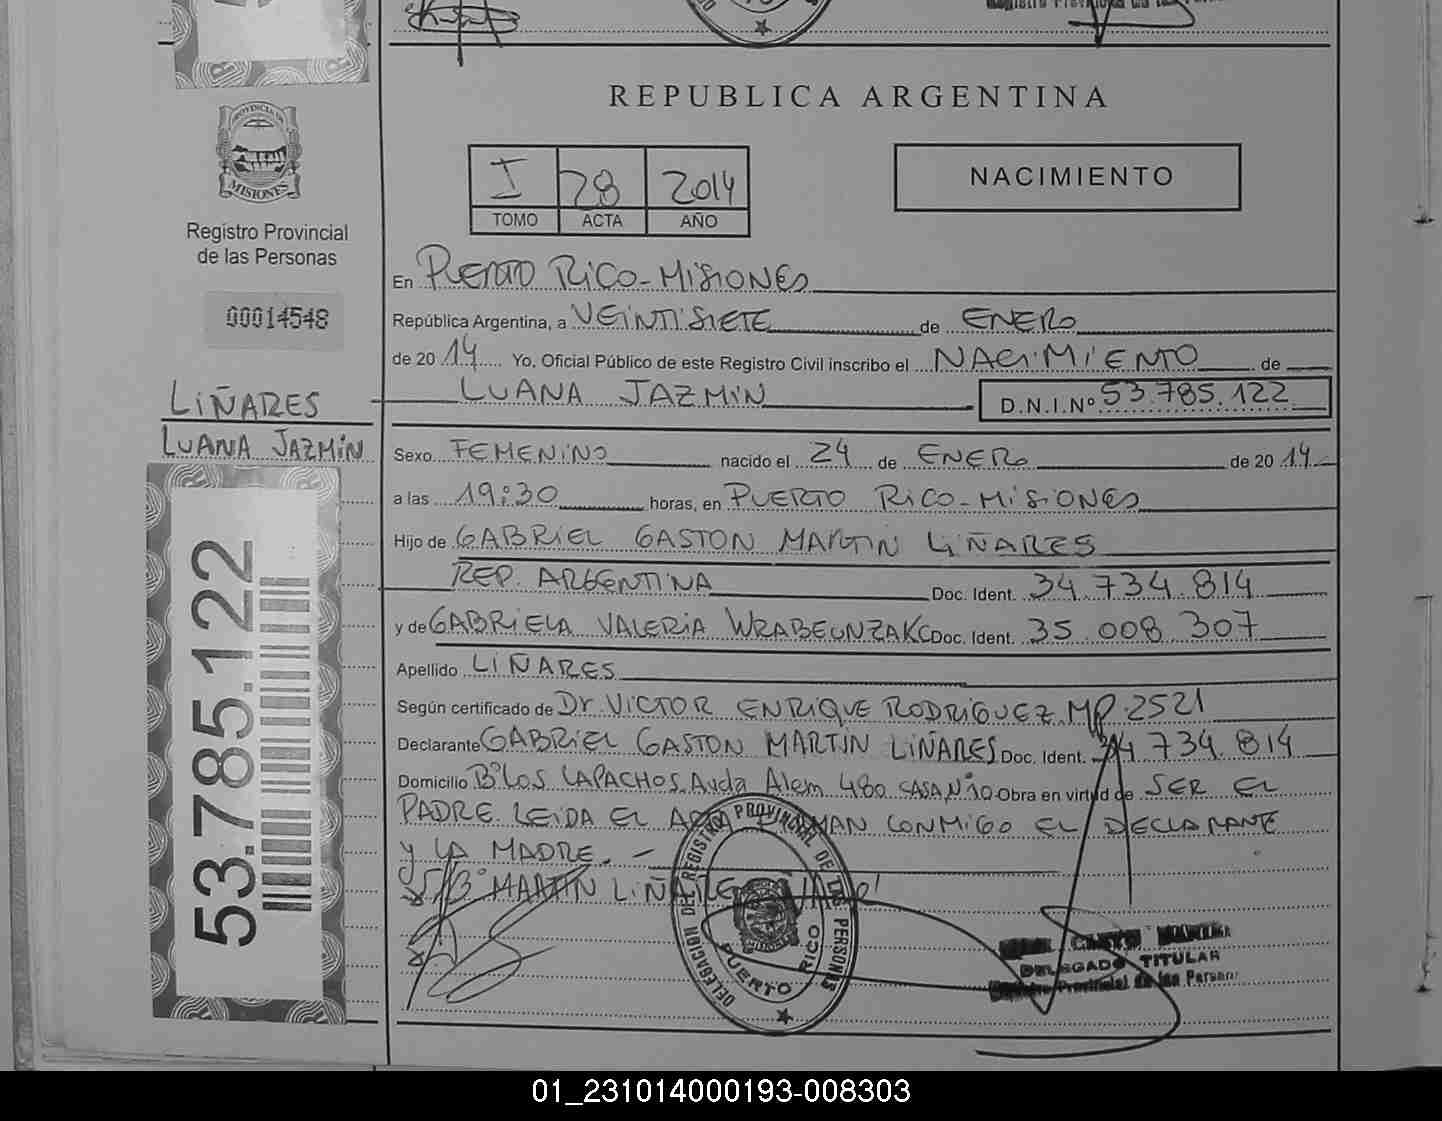 REPUBLICA ARGENTINA
PROVINCIA DE
MISIONES
Registro Provincial
de las Personas
00014548
I 28 2014
TOMO ACTA AÑO
NACIMIENTO
En PUERTO RICO-MISIONES
República Argentina, a VEINTISIETE de ENERO
de 20 14 Yo. Oficial Público de este Registro Civil inscribo el NACIMIENTO de
LIÑARES
LUANA JAZMIN
LUANA JAZMIN D.N.I.Nº 53.785.122
Sexo FEMENINO nacido el 24 de ENERO de 20 14
a las 19:30 horas, en PUERTO RICO-MISIONES
Hijo de GABRIEL GASTON MARTIN LIÑARES
REP. ARGENTINA Doc. Ident. 34.734.814
y de GABRIELA VALERIA Doc. Ident. 35 008 307
Apellido LIÑARES
Según certificado de Dr VICTOR ENRIQUE RODRIGUEZ MP.2521
Declarante GABRIEL GASTON MARTIN LIÑARES Doc. Ident. 34 734.814
Domicilio Bº LOS LAPACHOS. Avda Alem 480 CASA Nº10 Obra en virtud de SER EL
PADRE. LEIDA EL CONMIGO EL DECLARANTE
y LA MADRE. -
MARTIN
53.785.122
DELEGACION DEL REGISTRO PROVINCIAL DE LAS PERSONAS
PUERTO RICO
DELEGADO TITULAR
Registro Provincial de las Person
01_231014000193-008303